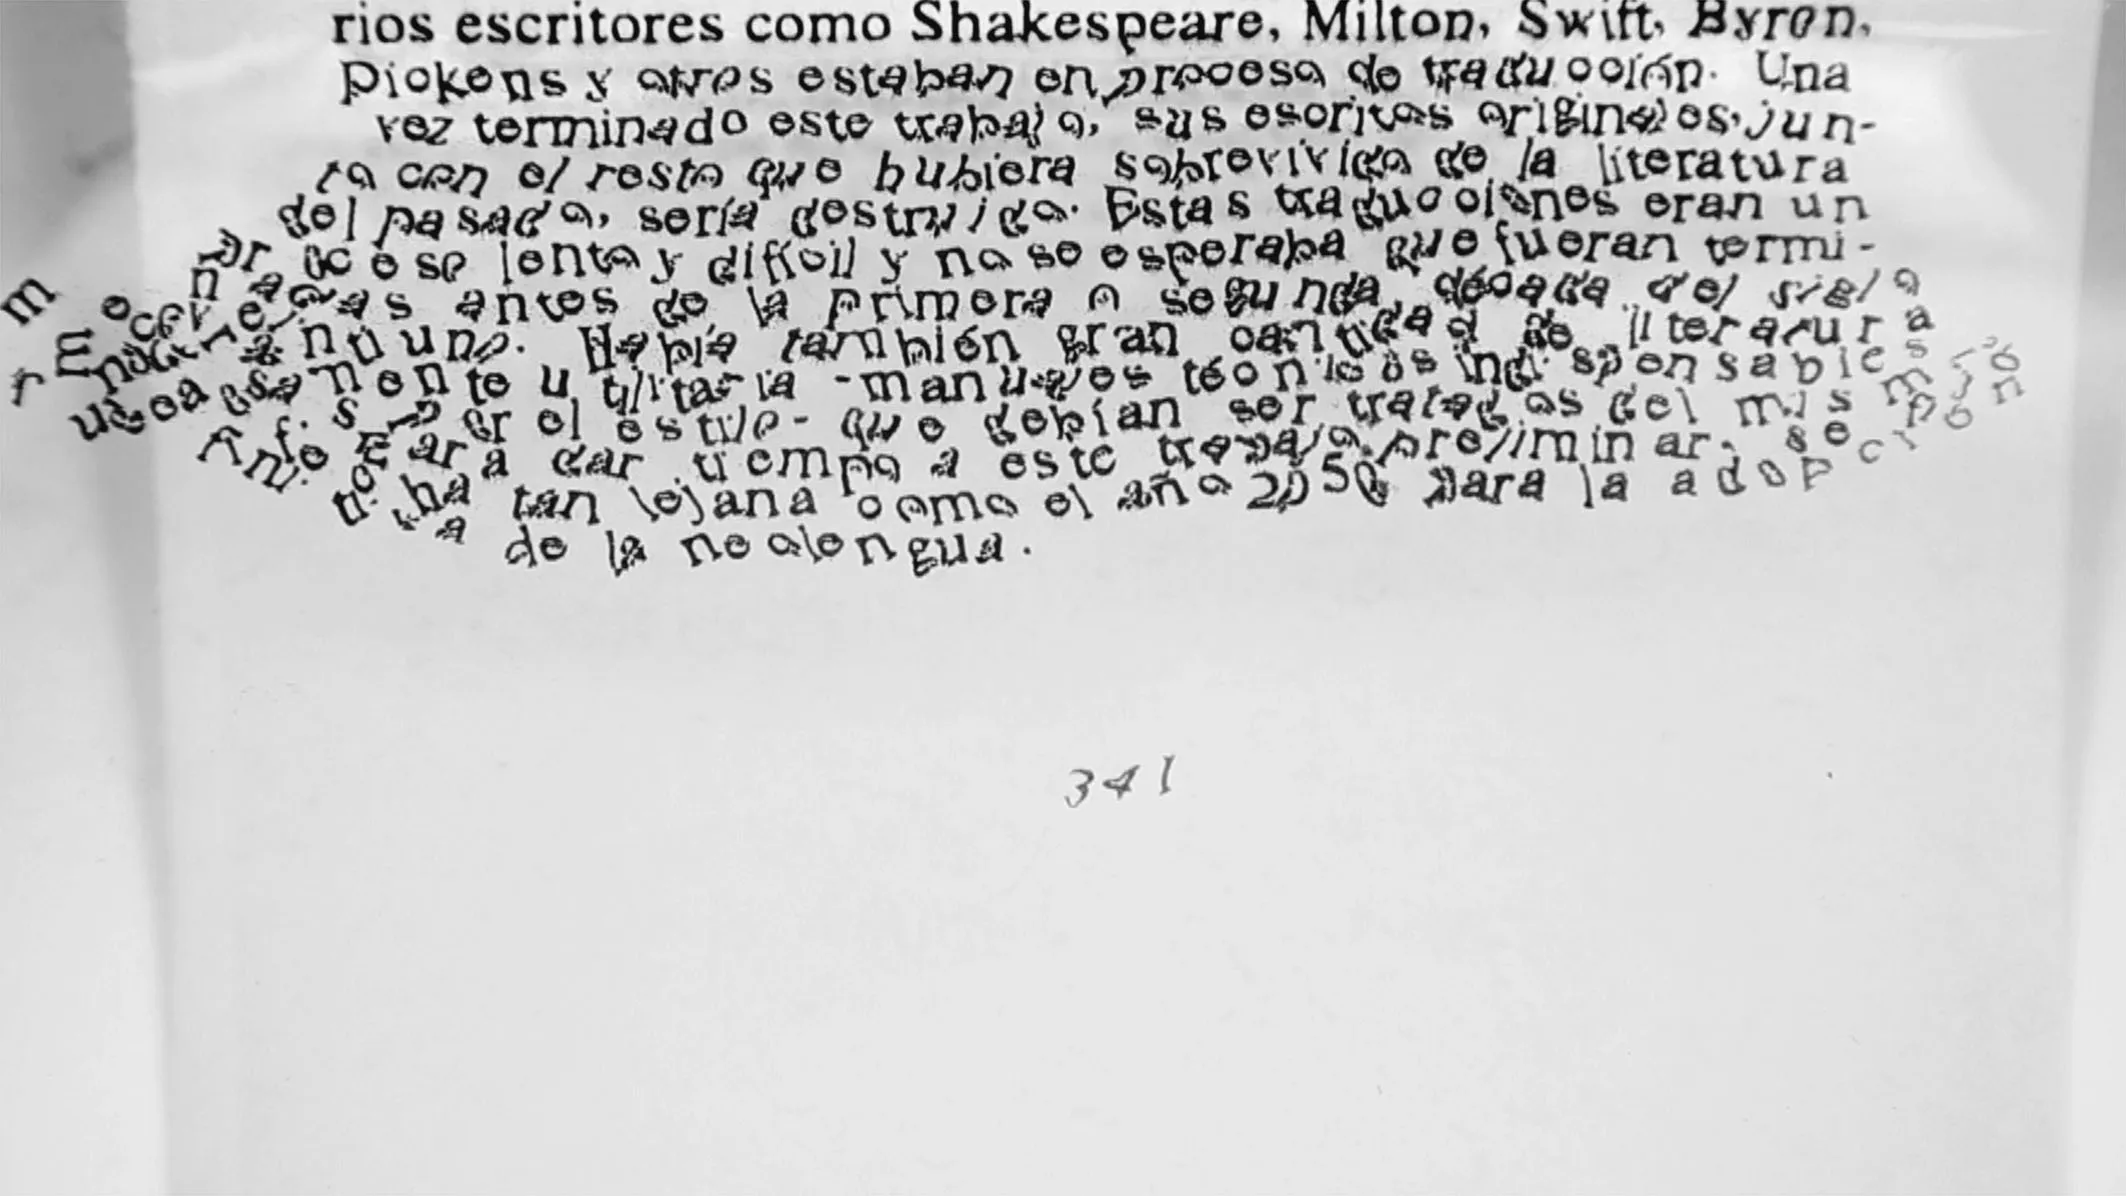 rios escritores como Shakespeare, Milton, Swift, Byron,
Dickens y otros estaban en proceso de traducción. Una
vez terminado este trabajo, sus escritos originales, jun-
to con el resto que hubiera sobrevivido de la literatura
del pasado, sería destruido. Estas traducciones eran un
proceso lento y difícil y no se esperaba que fueran termi-
nadas antes de la primera o segunda década del siglo
uno. Había también gran cantidad de literatura
utilitaria -manuales técnicos indispensables
por el estilo- que debían ser tratados del mismo
para dar tiempo a este trabajo preliminar, se
tan lejana como el año 2050 para la adopción
de la neolengua.
341